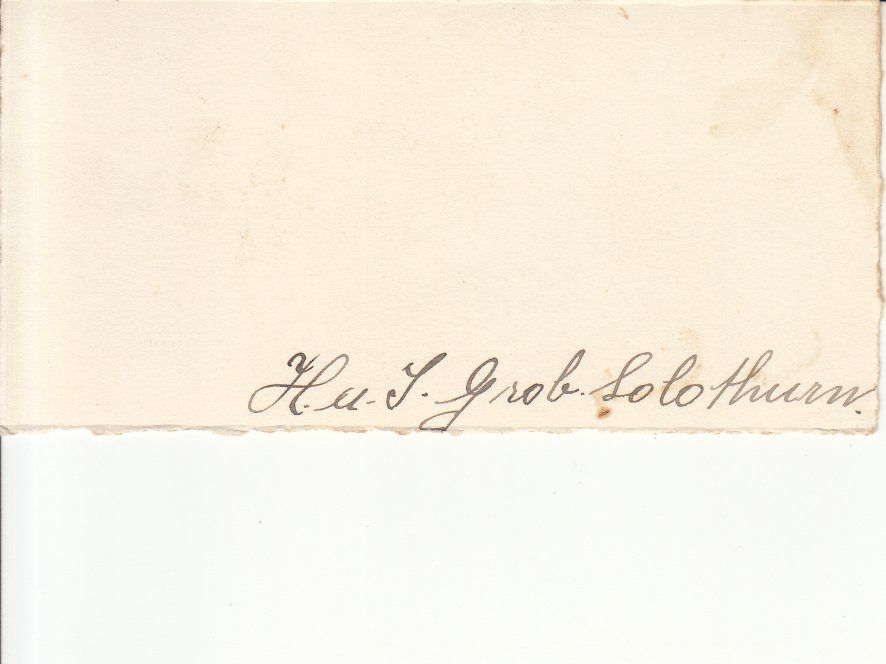 H. u. S. Grob. Solothurn.